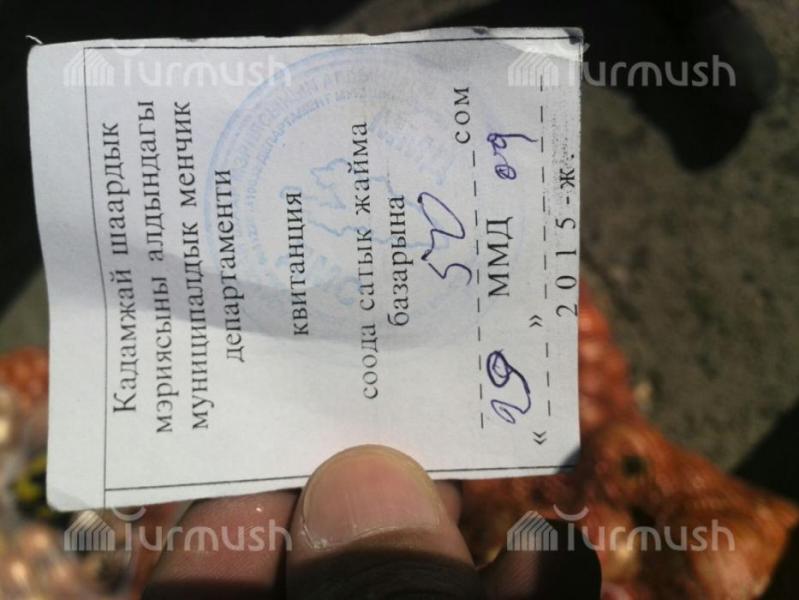 Кадамжай шаардык
мэриясыны алдындагы
муниципалдык менчик
департаменти
квитанция
соода сатык жайма
базарына
50 сом
29 ММД 09
« » 2015-ж.
Turmush
Turmush
Turmush
Turmush